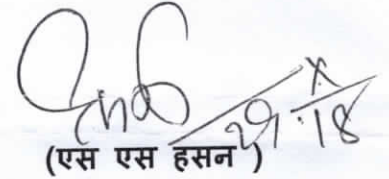 29.X.18
(एस एस हसन)